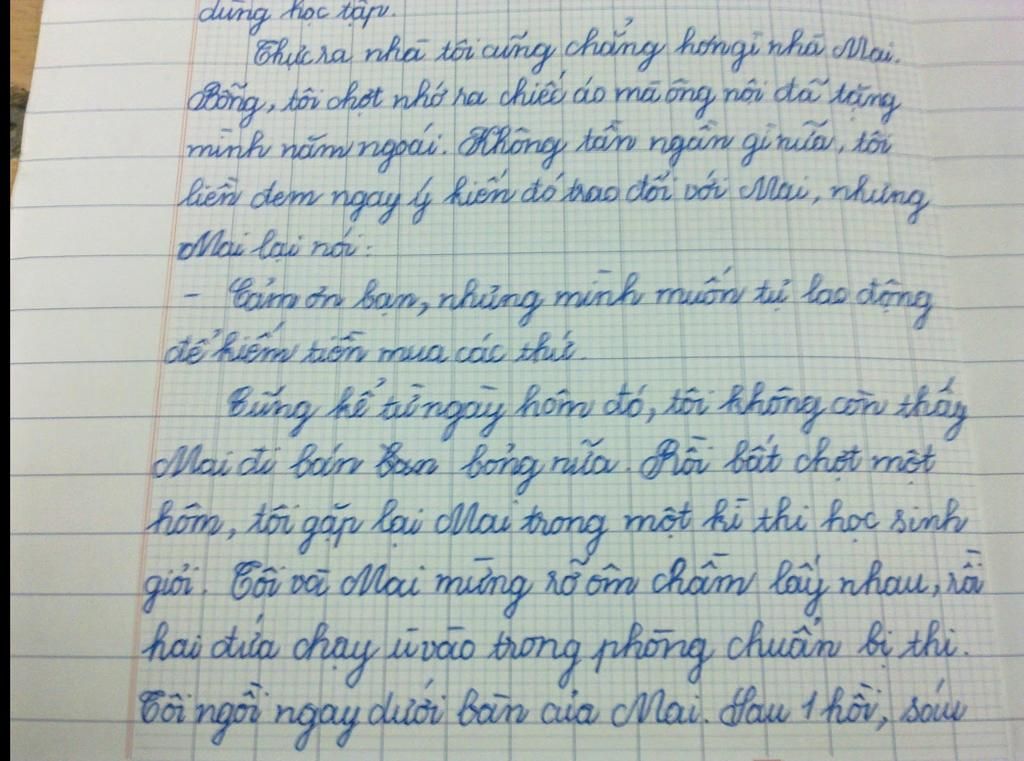 dùng học tập.
Thực ra nhà tôi cũng chẳng hơn gì nhà Mai.
Bỗng, tôi chợt nhớ ra chiếc áo mà ông nội đã tặng
mình năm ngoái. Không tần ngần gì nữa, tôi
liền đem ngay ý kiến đó trao đổi với Mai, nhưng
Mai lại nói:
- Cảm ơn bạn, nhưng mình muốn tự lao động
để kiếm tiền mua các thứ.
Cũng kể từ ngày hôm đó, tôi không còn thấy
Mai đi bán bỏng nữa. Rồi bất chợt một
hôm, tôi gặp lại Mai trong một kì thi học sinh
giỏi. Tôi và Mai mừng rỡ ôm chầm lấy nhau, rồi
hai đứa chạy ù vào trong phòng chuẩn bị thi.
Tôi ngồi ngay dưới bàn của Mai. Sau 1 hồi, sáu